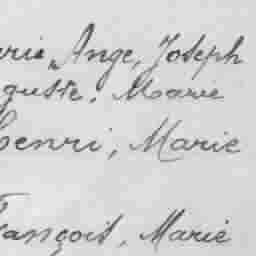 arie, Ange, Joseph
guste, Marie
Henri, Marie
François, Marie